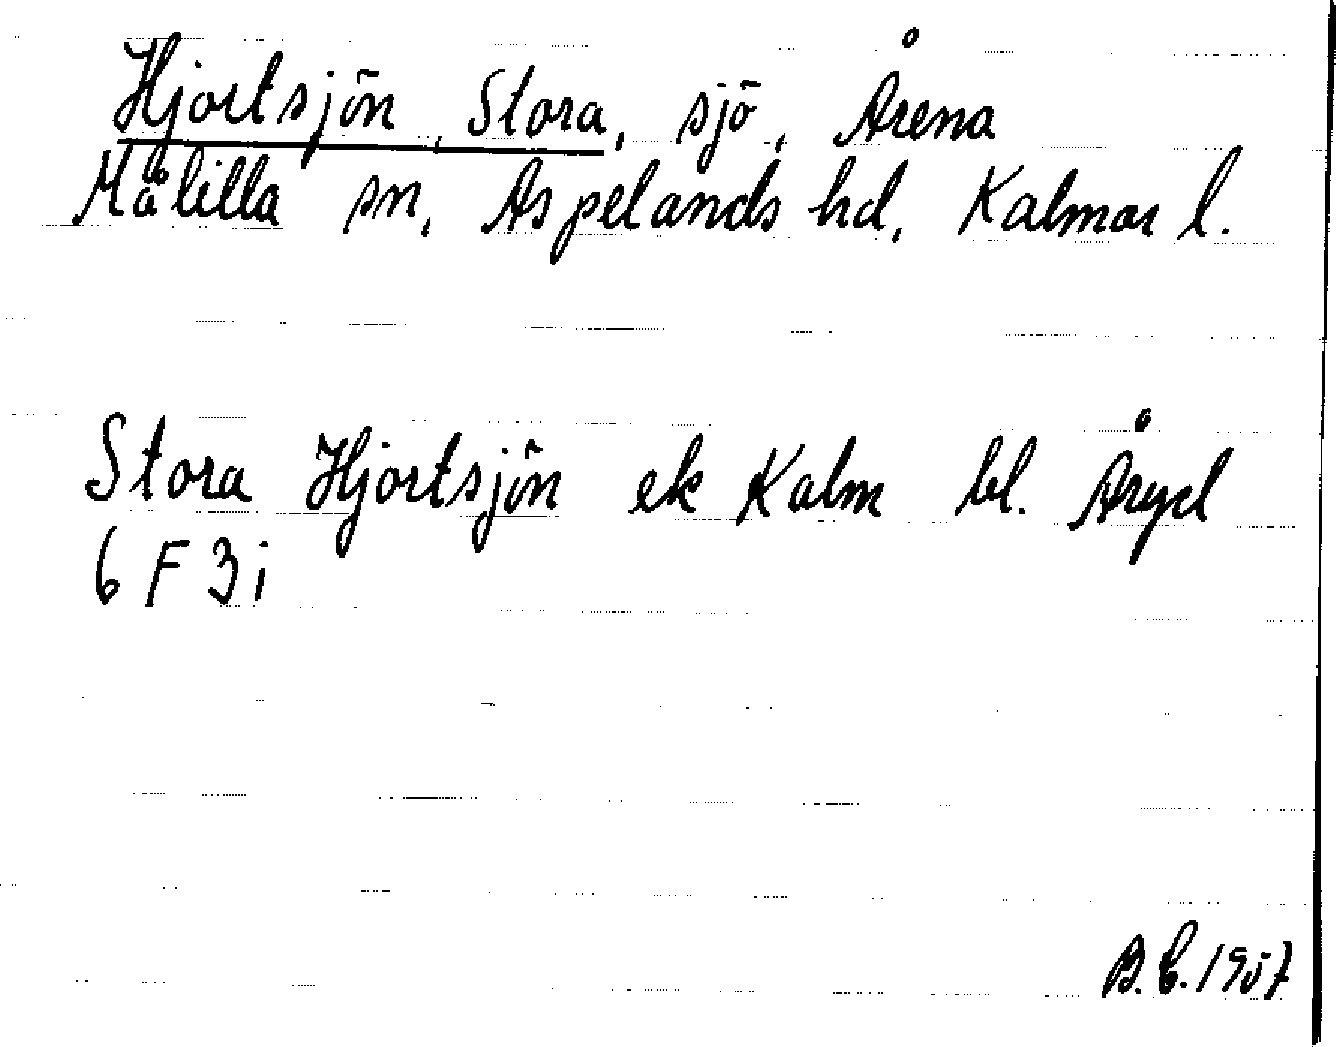 Hjortsjön, Stora, sjö, Årena
Målilla sn, Aspelands hd, Kalmar l.
Stora Hjortsjön ek Kalm bl. Åryd
6 F 3 i
B.E. 1957